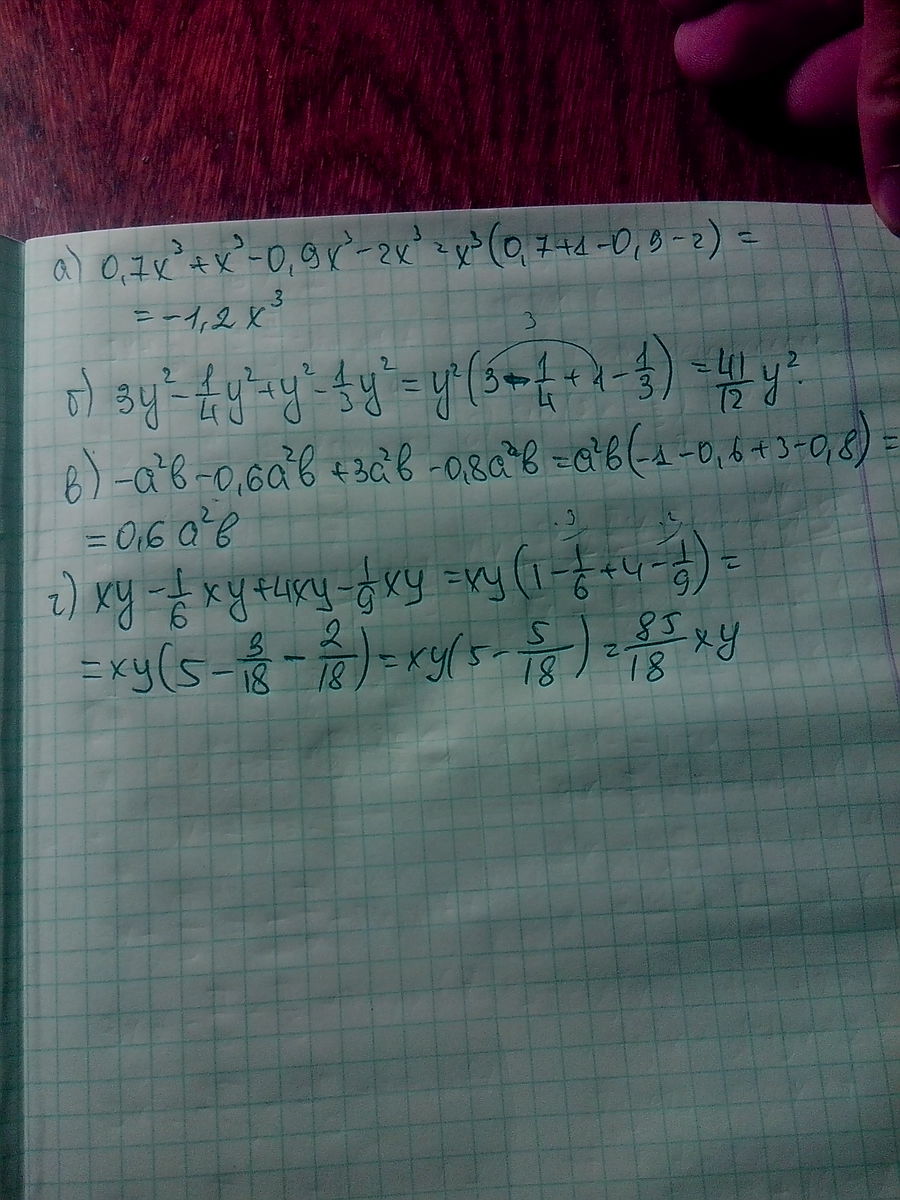 а) 0,7x³+x³-0,9x³-2x³=x³(0,7+1-0,9-2)=
=-1,2x³
3
б) 3y²-1/4y²+y²-1/3y²=y²(3-1/4+1-1/3)=41/12y².
в) -a²b-0,6a²b+3a²b-0,8a²b=a²b(-1-0,6+3-0,8)=
=0,6a²b
.3 .2
г) xy-1/6xy+4xy-1/9xy=xy(1-1/6+4-1/9)=
=xy(5-3/18-2/18)=xy(5-5/18)=85/18xy